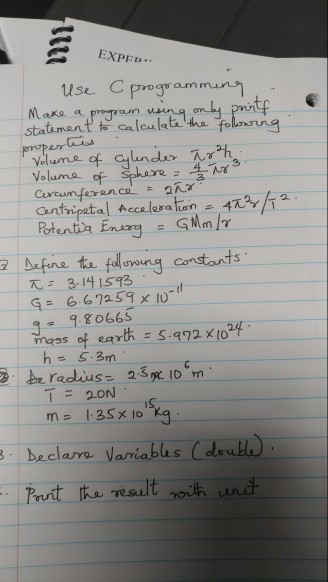 EXPER
Use C programming
Make a program using only printf
statement to calculate the following
properties
Volume of cylinder πr²h.
Volume of sphere = 4/3 πr³
Circumference = 2πr
Centripetal Acceleration = 4π²r/T².
Potentia Energy = GMm/r
Define the following constants.
π = 3.141593
G = 6.67259 × 10⁻¹¹
g = 9.80665
mass of earth = 5.972×10²⁴.
h = 5.3m
radius = 2.5 × 10⁶ m.
T = 20N
m = 1.35 × 10¹⁵ kg.
3. Declare Variables (double).
Print the result with unit